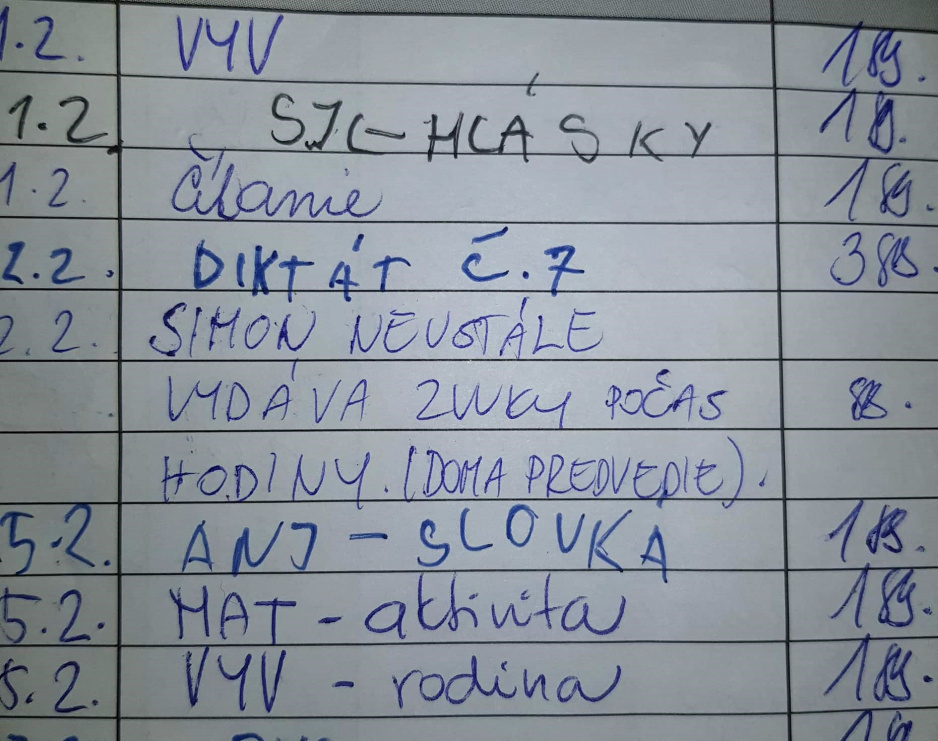 1.2. VYV 1
1.2. SJL-HLÁSKY 1
1.2. Čítanie 1
2.2. DIKTÁT Č.7 3
2.2. SIMON NEUSTÁLE
VYDÁVA ZVUKY POČAS
HODINY. (DOMA PREDVEDIE).
5.2. ANJ - SLOVKA 1
5.2. MAT - aktivita 1
5.2. VYV - rodina 1